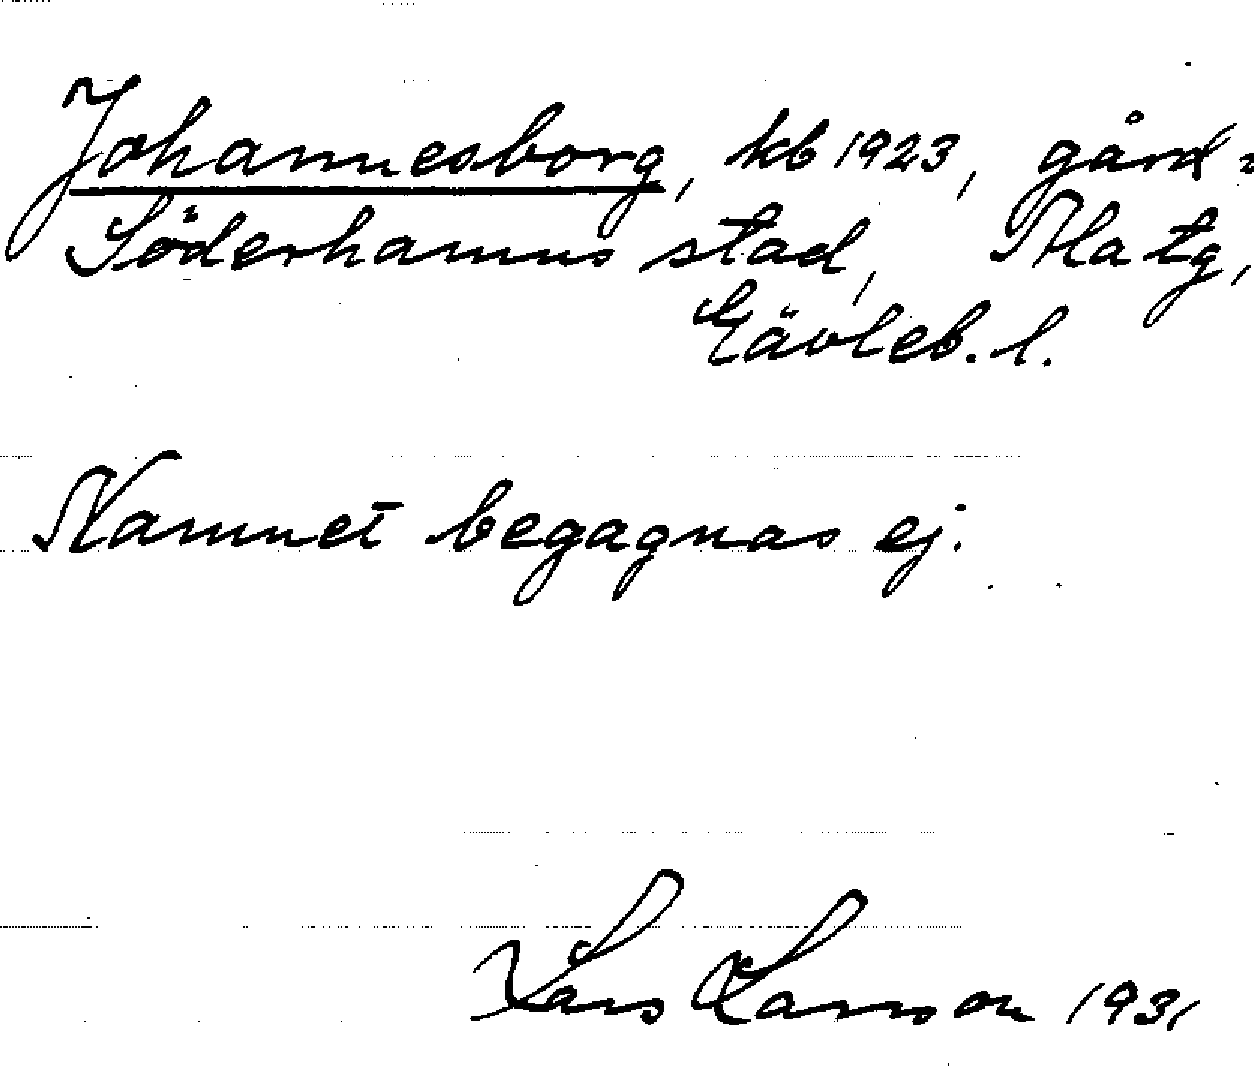 Johannesborg, kb 1923, gård i
Söderhamns stad, Ala tg,
Gävleb. l.
Namnet begagnas ej.
Lars Larsson 1931